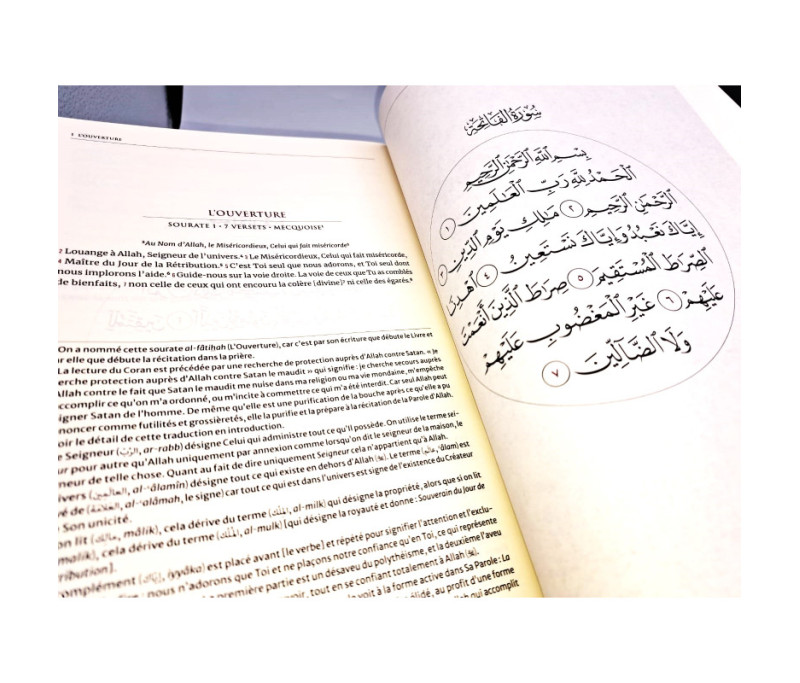 1 L'OUVERTURE
L'OUVERTURE
SOURATE 1 • 7 VERSETS • MECQUOISE¹
¹Au Nom d'Allah, le Miséricordieux, Celui qui fait miséricorde²
² Louange à Allah, Seigneur de l'univers.⁴ ³ Le Miséricordieux, Celui qui fait miséricorde,
⁴ Maître du Jour de la Rétribution.⁵ ⁵ C'est Toi seul que nous adorons, et Toi seul dont
nous implorons l'aide.⁶ ⁶ Guide-nous sur la voie droite. La voie de ceux que Tu as comblés
de bienfaits, ⁷ non celle de ceux qui ont encouru la colère (divine)⁷ ni celle des égarés.⁸
On a nommé cette sourate al-fâtiḥah (L'Ouverture), car c'est par son écriture que débute le Livre et
r elle que débute la récitation dans la prière.
La lecture du Coran est précédée par une recherche de protection auprès d'Allah contre Satan. « Je
erche protection auprès d'Allah contre Satan le maudit » qui signifie : je cherche secours auprès
Allah contre le fait que Satan le maudit me nuise dans ma religion ou ma vie mondaine, m'empêche
accomplir ce qu'on m'a ordonné, ou m'incite à commettre ce qui m'a été interdit. Car seul Allah peut
igner Satan de l'homme. De même qu'elle est une purification de la bouche après ce qu'elle a pu
noncer comme futilités et grossièretés, elle la purifie et la prépare à la récitation de la Parole d'Allah.
oir le détail de cette traduction en introduction.
e Seigneur (الرَّبّ, ar-rabb) désigne Celui qui administre tout ce qu'Il possède. On utilise le terme sei-
ur pour autre qu'Allah uniquement par annexion comme lorsqu'on dit le seigneur de la maison, le
neur de telle chose. Quant au fait de dire uniquement Seigneur cela n'appartient qu'à Allah.
ivers (العالمين, al-'âlamîn) désigne tout ce qui existe en dehors d'Allah. Le terme (عالم, 'âlam) est
ré de (العلامة, al-'alâmah, le signe) car tout ce qui est dans l'univers est signe de l'existence du Créateur
Son unicité.
on lit (مالك, mâlik), cela dérive du terme (المِلك, al-milk) qui désigne la propriété, alors que si on lit
malik), cela dérive du terme (المُلك, al-mulk) [qui désigne la royauté et donne : Souverain du Jour de
tribution].
omplément (إيّاك, iyyâka) est placé avant [le verbe] et répété pour signifier l'attention et l'exclu-
: nous n'adorons que Toi et ne plaçons notre confiance qu'en Toi, ce qui représente
première partie est un désaveu du polythéisme, et la deuxième l'aveu
oir, tout en se confiant totalement à Allah
voit à la forme active dans Sa Parole : La
élidé, au profit d'une forme
lah qui accomplit
سُورَةُ الفَاتِحَةِ
بِسْمِ ٱللَّهِ ٱلرَّحْمَٰنِ ٱلرَّحِيمِ
ٱلْحَمْدُ لِلَّهِ رَبِّ ٱلْعَٰلَمِينَ ١
ٱلرَّحْمَٰنِ ٱلرَّحِيمِ ٢ مَٰلِكِ يَوْمِ ٱلدِّينِ ٣
إِيَّاكَ نَعْبُدُ وَإِيَّاكَ نَسْتَعِينُ ٤ ٱهْدِنَا
ٱلصِّرَٰطَ ٱلْمُسْتَقِيمَ ٥ صِرَٰطَ ٱلَّذِينَ أَنْعَمْتَ
عَلَيْهِمْ ٦ غَيْرِ ٱلْمَغْضُوبِ عَلَيْهِمْ
وَلَا ٱلضَّآلِّينَ ٧